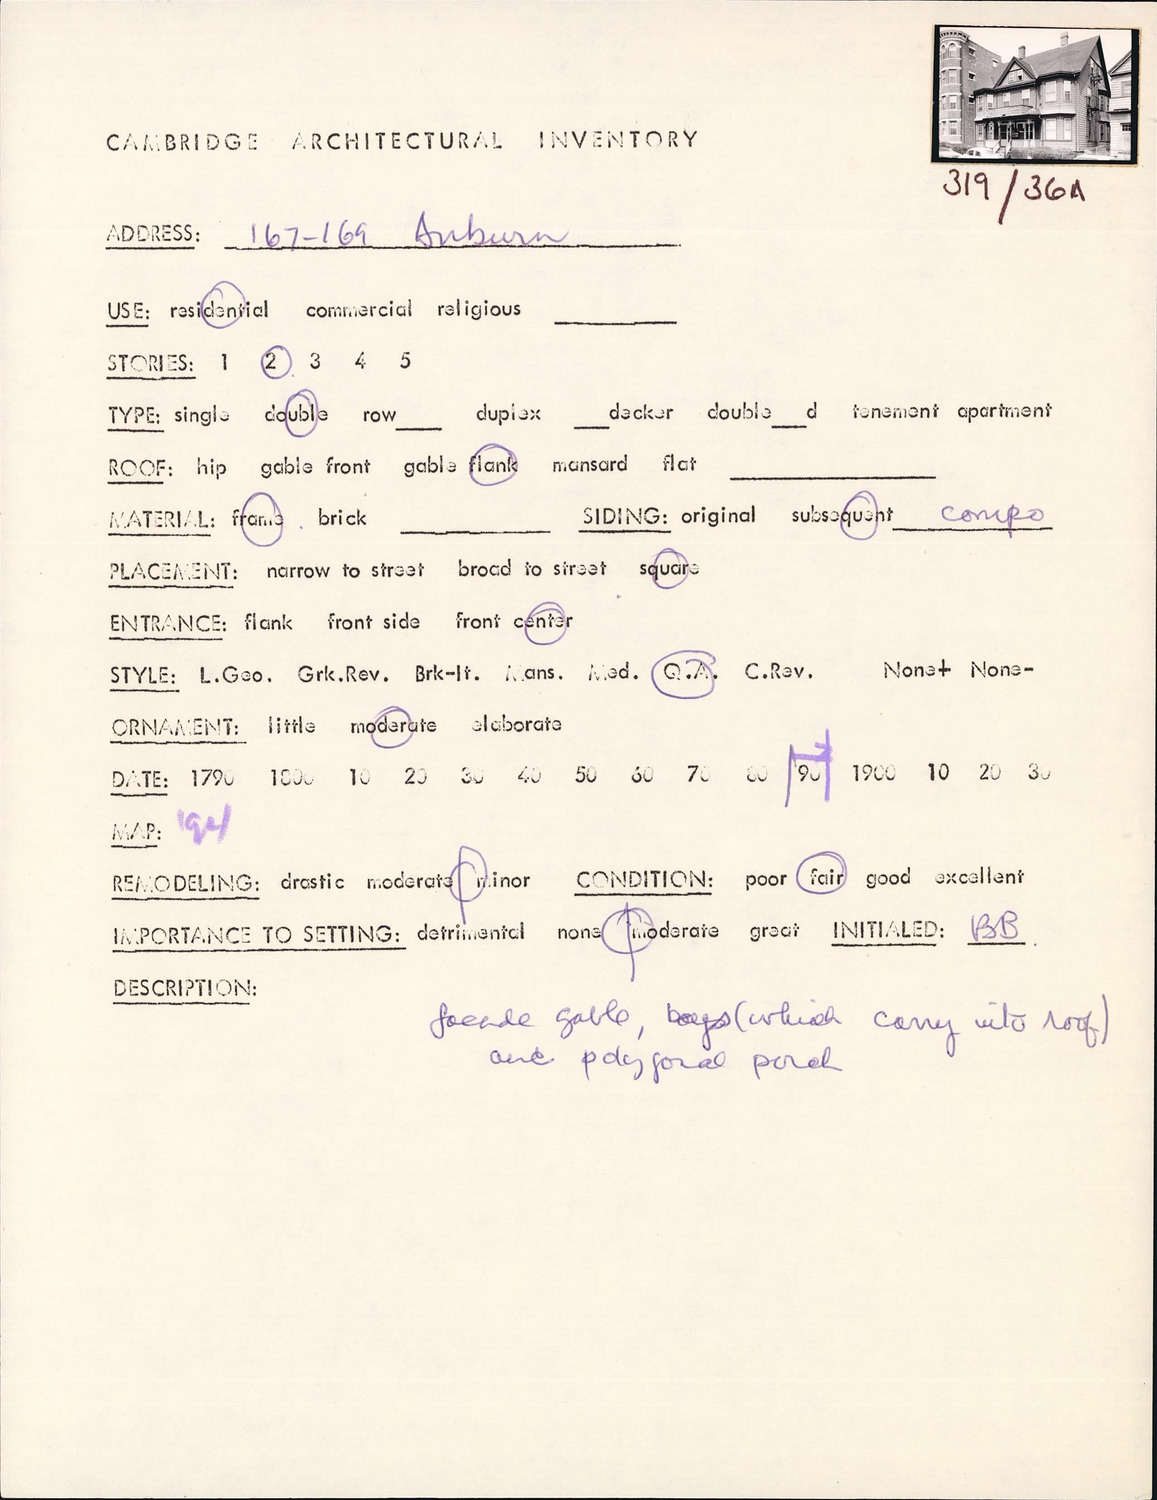 319/36A
CAMBRIDGE ARCHITECTURAL INVENTORY
ADDRESS: 167-169 Auburn
USE: residential commercial religious
STORIES: 1 2 3 4 5
TYPE: single double row___ duplex ___decker double___d tenement apartment
ROOF: hip gable front gable flank mansard flat
MATERIAL: frame brick SIDING: original subsequent compo
PLACEMENT: narrow to street broad to street square
ENTRANCE: flank front side front center
STYLE: L.Geo. Grk.Rev. Brk-It. Mans. Med. Q.A. C.Rev. None+ None-
ORNAMENT: little moderate elaborate
DATE: 1790 1800 10 20 30 40 50 60 70 80 90 1900 10 20 30
MAP: '94
REMODELING: drastic moderate minor CONDITION: poor fair good excellent
IMPORTANCE TO SETTING: detrimental none moderate great INITIALED: BB
DESCRIPTION:
facade gable, bays (which carry into roof)
and polygonal porch